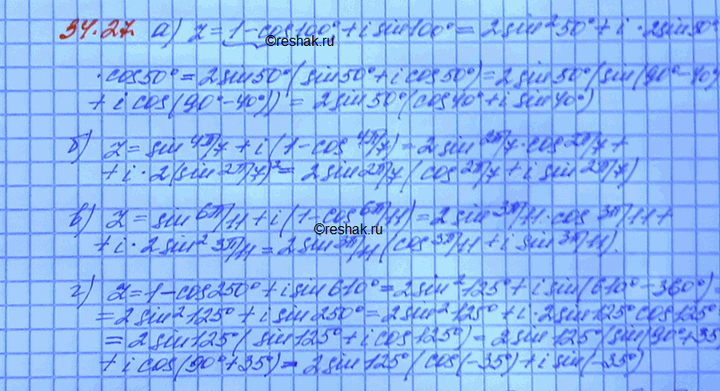 34.27. а) z = 1-cos100° + i sin100° = 2sin²50° + i · 2sin50°
©reshak.ru
· cos50° = 2sin50°(sin50° + i cos50°) = 2sin50°(sin(90°-40°)
+ i cos(90°-40°)) = 2sin50°(cos40° + i sin40°)
б) z = sin 4π/7 + i(1-cos 4π/7) = 2sin 2π/7 · cos 2π/7 +
+ i · 2(sin 2π/7)² = 2sin 2π/7 (cos 2π/7 + i sin 2π/7)
в) z = sin 6π/11 + i(1-cos 6π/11) = 2sin 3π/11 · cos 3π/11 +
©reshak.ru
+ i · 2sin² 3π/11 = 2sin 3π/11 (cos 3π/11 + i sin 3π/11).
г) z = 1-cos250° + i sin610° = 2sin²125° + i sin(610°-360°)
= 2sin²125° + i sin250° = 2sin²125° + i · 2sin125° cos125°
= 2sin125°(sin125° + i cos125°) = 2sin125°(sin(90°+35°)
+ i cos(90°+35°) = 2sin125°(cos(-35°) + i sin(-35°)